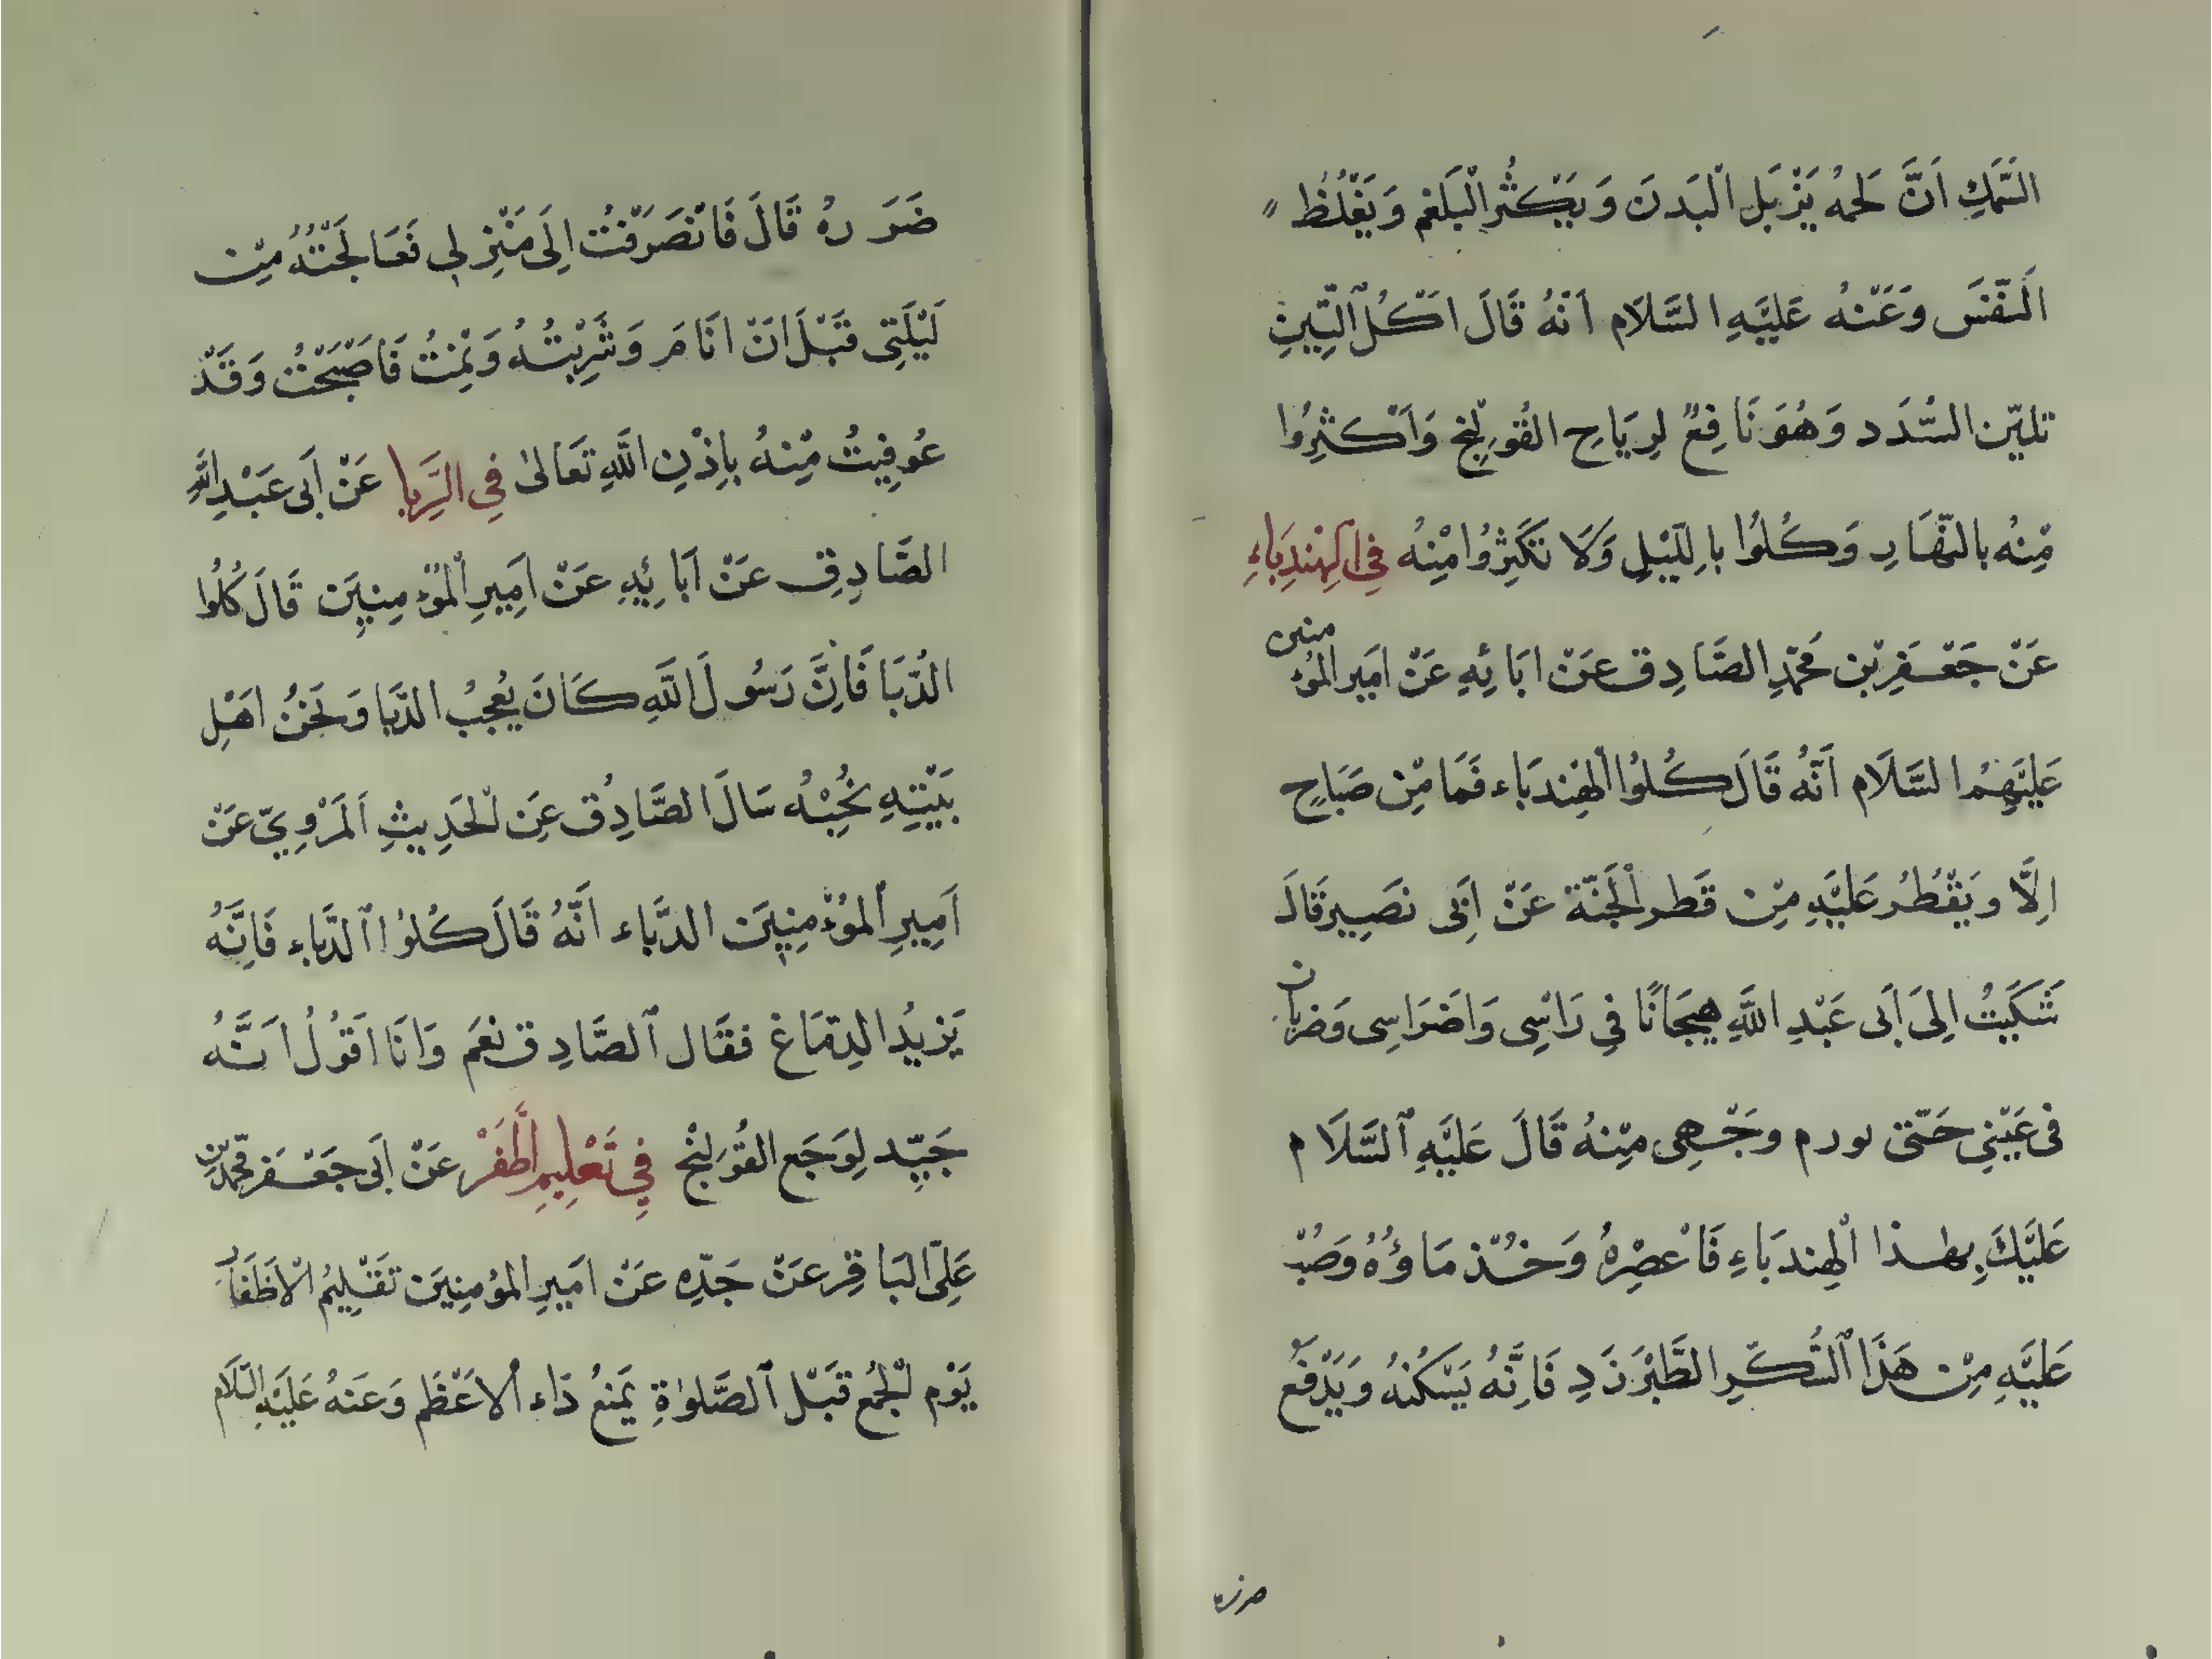 السَّمَكِ اَنَّ لَحمُه يَزْبَل الْبَدنَ وَيَكثُر الْبَلغم وَيَغْلُظُ
اَلنّفْسَ وَعَنْهُ عَلَيْهِ السَّلَام اَنَّهُ قَالَ اَكْلُ الِتّينِ
تليّن السُّدَد وَهُوَ نَافِعٌ لرِيَاحِ القُولِنْج وَاَكْثِرُوا
مْنِهُ بالنَّهَارِ وَكُلُوْا باِللّيْلِ وَلَا تَكَثِرُوْا مْنِهُ فيِ الهِنْدِبَاءِ
عَنْ جَعْفَرِ بْن مُحَمّدِ الصَّادِق عَنْ ابَائِهِ عَنْ امَيِر المؤُمنين
عَلَيْهِمُ السَّلَام اَنّهُ قَالَ كُلوُا الْهنِدبَاء فَمَا مْنِ صَبَاحٍ
اِلَّا وَيقْطُرُ عَلَيْهِ مْنِ قَطر الْجَنّة عَنْ اَبِى نصَيِر قَالَ
شَكَيتُ اِلىَ اَبى عَبْدِ اللَّهِ هيجَانًا فيِ رَاْسِى وَاضَرَاسِى وَضربان
فى عَيْنيِ حَتىّ يورم وجَهِى مْنِهُ قَالَ عَلَيْهِ السَّلَام
عَليَكَ بِهٰذا الْهِندبَاءِ فَاعْصِرْهُ وَخُذ مَاؤُهُ وَصُبْ
عَليَهِ مْنِ هَذَا السُّكّرِ الطَّبْرَزَدِ فَاِنَّهُ يَسْكُنهُ وَيَدْفَع
ضرره
ضَرَرهُ قَالَ فَانْصَرَفتُ اِلَى مَنْزِلِى فَعَالَجْتُهُ مِنْ
لَيْلَتِى قَبْلَ اَنْ اَنَامَ وَشَرِبْتُهُ وَنِمْتُ فَاصْبَحْتُ وَقَدْ
عُوفِيتُ مْنِهُ باِذْنِ اللَّهِ تَعَالىٰ فيِ الدّبا عَنْ اَبى عَبْدِ اللَّهِ
الصَّادِقِ عَنْ اَبائِهِ عَنْ اَمِيرِ الْموُمنِينَ قَالَ كُلُوْا
الدّبَا فَاِنَّ رَسُولَ اللَّهِ كَانَ يُعجِبُ الدّبَا وَنَحْنُ اهَلِ
بَيْتِهِ نُحِبْهُ سَالَ الصَّادِقُ عَنِ لْحَدِيثِ اَلمَرْوِيّ عَنْ
اَمِيرِ الْموُمِنِينَ الدَّباء اَنَّهُ قَالَ كُلوُا الدّباءِ فَاِنَّهُ
يَزيدُ الدِمَاغ فقَال الصَّادِق نعَم وَانَا اقَوُلُ اَنَّهُ
جَيّد لِوَجَع القُولِنْج فيِ تَعْلِيمِ اَلْظَفْر عَنْ اَبى جَعْفَر مُحمّد بن
عَلِىّ البَاقِر عَنْ جَدّهِ عَنْ امَيرِ الموُمِنِين تَقْلِيمُ الْاَظَفَار
يَوْم لْجُمَع قَبْل الصَّلوٰةِ يَمنعُ دَاء الاعْظَم وَعَنهُ عَلَيْهِ السّلَام